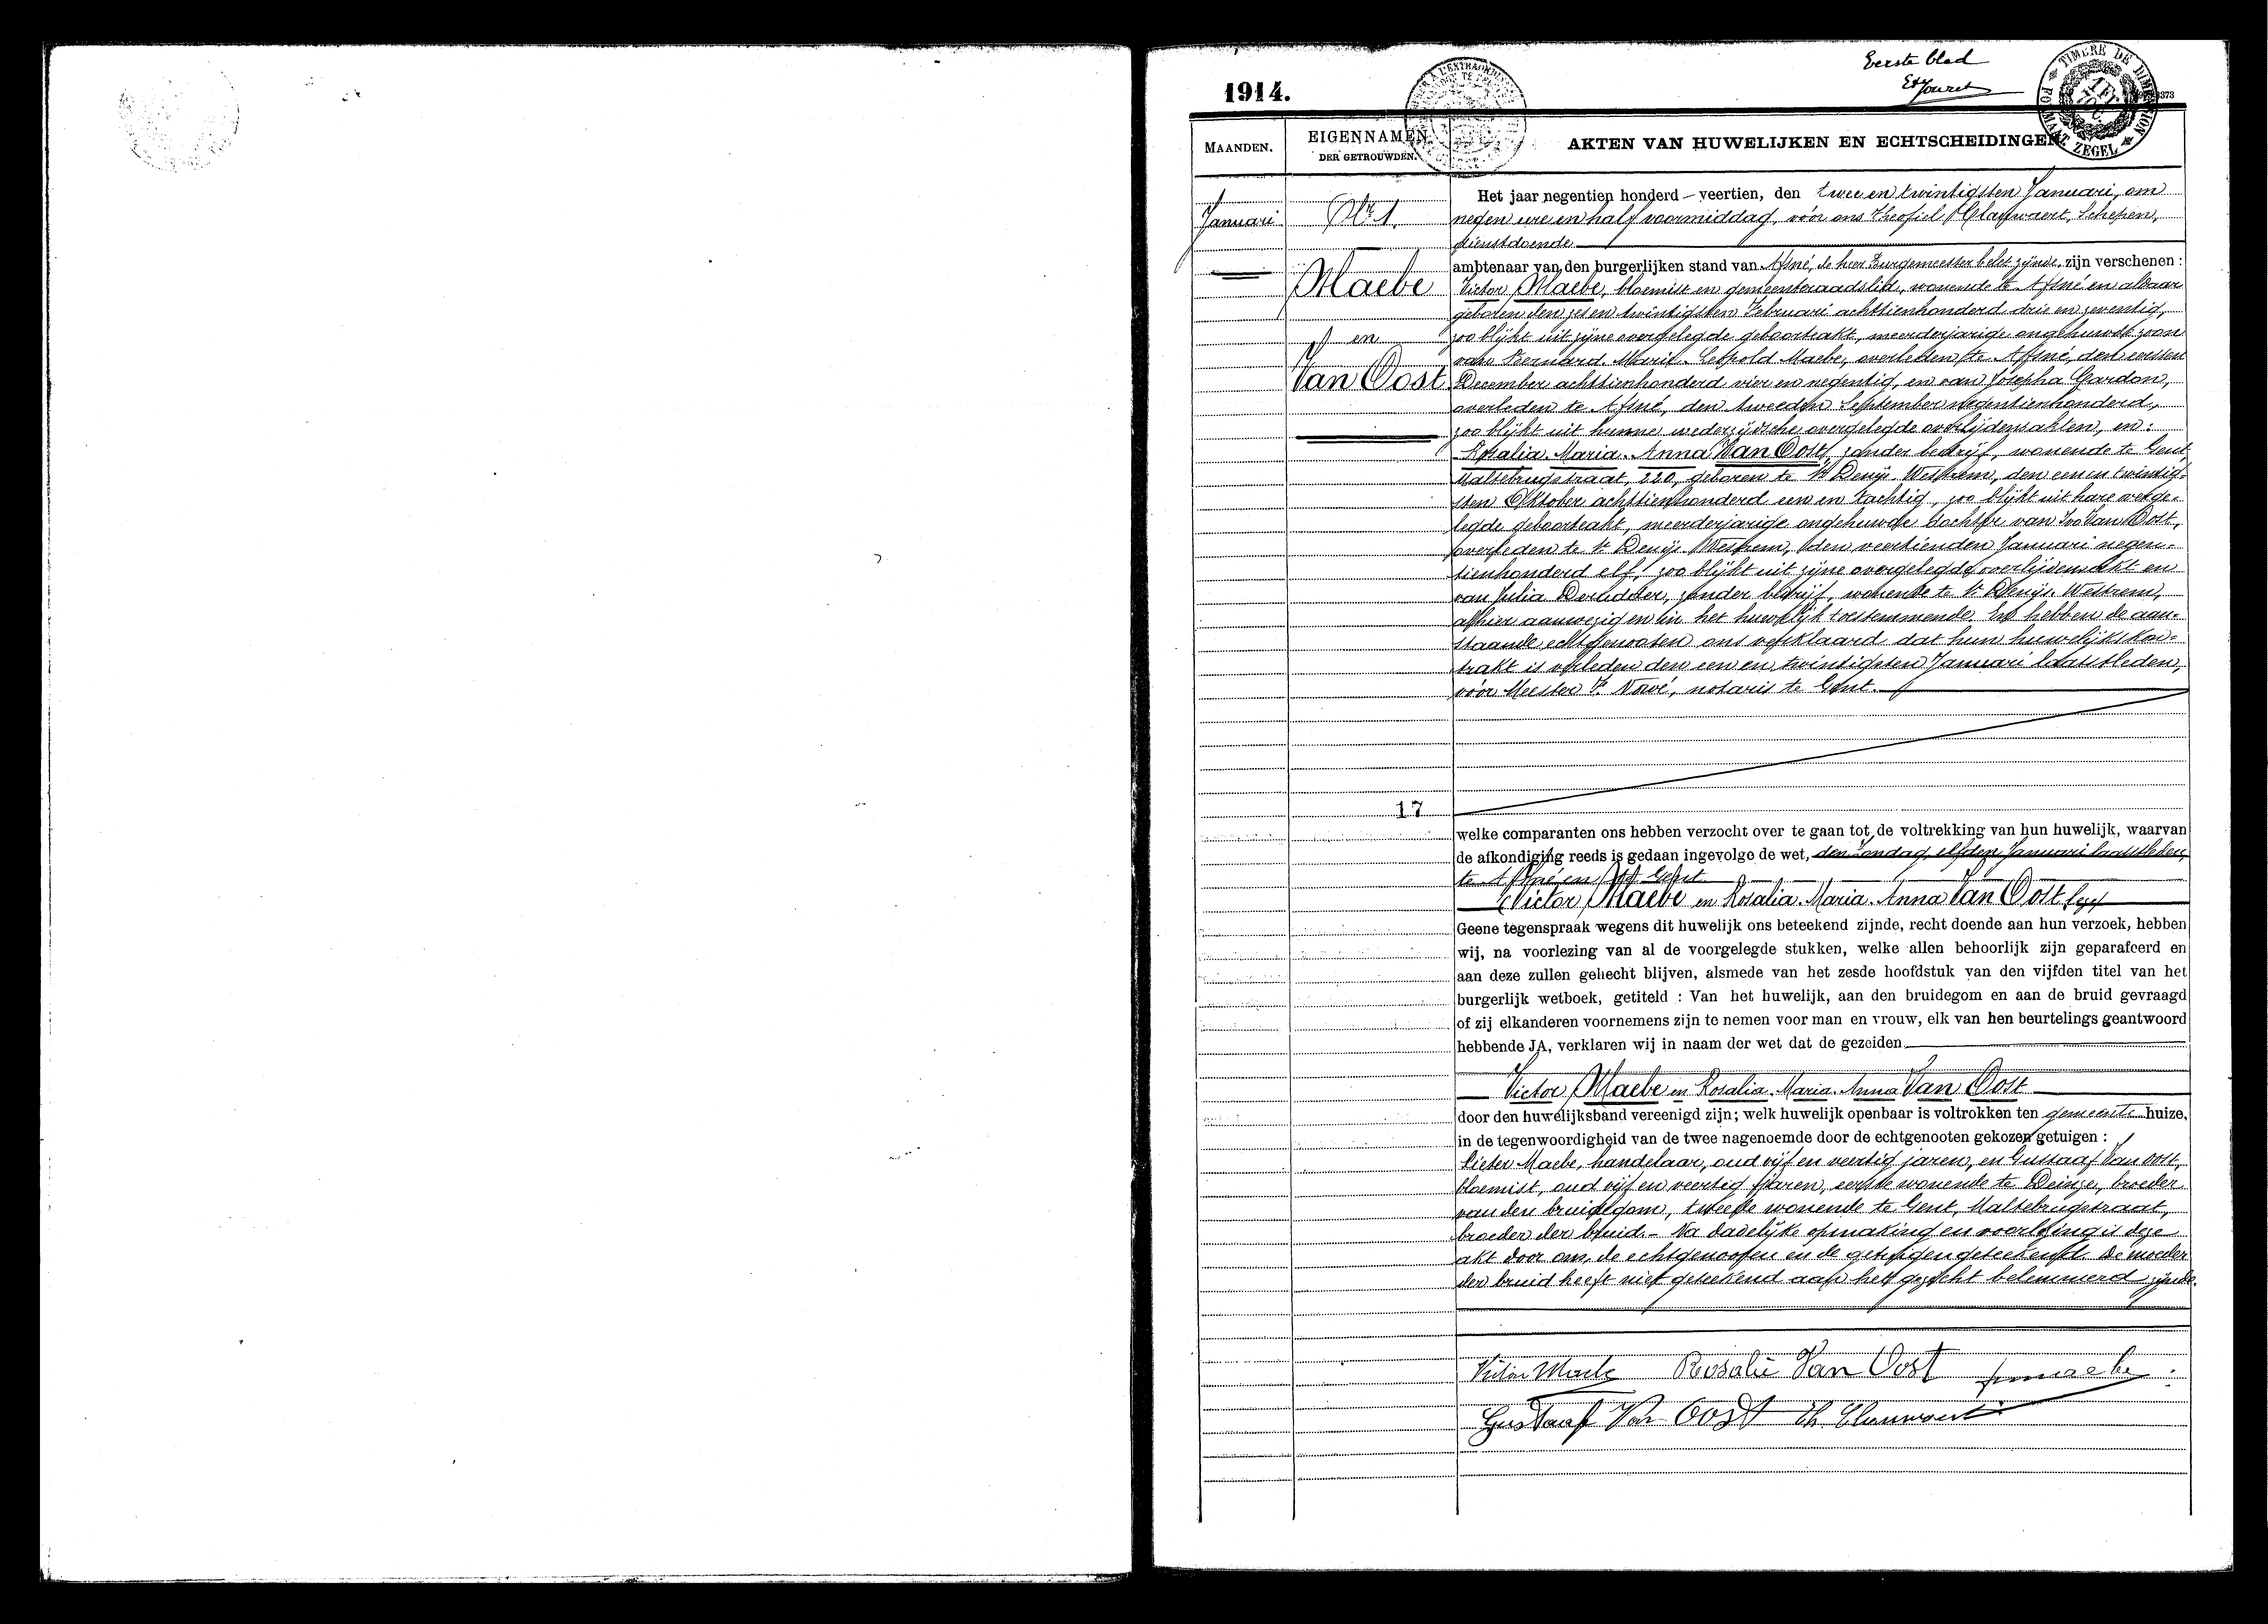 Eerste blad
1914.
TIMBRE DE DIMENSION
FORMAAT ZEGEL
MAANDEN.
EIGENNAMEN
DER GETROUWDEN.
AKTEN VAN HUWELIJKEN EN ECHTSCHEIDINGEN
Januari
Nr 1.
Maebe
en
Van Oost
17
Het jaar negentien honderd - veertien, den twee en twintigsten Januari, om
negen ure en half voormiddag, vóór ons Theofiel Clauwaert, Schepen,
dienstdoende
ambtenaar van den burgerlijken stand van Afsné, de heer Burgemeester belet zijnde, zijn verschenen :
Victor Maebe, bloemist en gemeenteraadslid, wonende te Afsné en aldaar
geboren den zes en twintigsten Februari achttienhonderd drie en zeventig,
zoo blijkt uit zijne overgelegde geboorteakt, meerderjarige ongehuwde zoon
van Bernard-Marie-Leopold Maebe, overleden te Afsné, den eersten
December achttienhonderd vier en negentig, en van Josepha Gardon,
overleden te Afsné, den tweeden September negentienhonderd,
zoo blijkt uit hunne wederzijdsche overgelegde overlijdensakten, en :
Rosalia-Maria-Anna Van Oost, zonder bedrijf, wonende te Gent,
Maltebrugstraat, 220, geboren te St Denijs-Westrem, den een en twintig-
sten Oktober achttienhonderd een en tachtig, zoo blijkt uit hare overge-
legde geboorteakt, meerderjarige ongehuwde dochter van Ivo Van Oost,
overleden te St Denijs-Westrem, den veertienden Januari negen-
tienhonderd elf, zoo blijkt uit zijne overgelegde overlijdensakt en
van Julia Deruddder, zonder bedrijf, wonende te St Denijs-Westrem,
alhier aanwezig en in het huwelijk toestemmende. En hebben de aan-
staande echtgenooten ons verklaard dat hun huwelijkskon-
trakt is verleden den een en twintigsten Januari laatstleden,
vóór Meester F. Nowé, notaris te Gent.
welke comparanten ons hebben verzocht over te gaan tot de voltrekking van hun huwelijk, waarvan
de afkondiging reeds is gedaan ingevolge de wet, den Zondag, elfden Januari laatstleden,
te Afsné en tot Gent
Victor Maebe en Rosalia-Maria-Anna Van Oost
Geene tegenspraak wegens dit huwelijk ons beteekend zijnde, recht doende aan hun verzoek, hebben
wij, na voorlezing van al de voorgelegde stukken, welke allen behoorlijk zijn geparafeerd en
aan deze zullen gehecht blijven, alsmede van het zesde hoofdstuk van den vijfden titel van het
burgerlijk wetboek, getiteld : Van het huwelijk, aan den bruidegom en aan de bruid gevraagd
of zij elkanderen voornemens zijn te nemen voor man en vrouw, elk van hen beurtelings geantwoord
hebbende JA, verklaren wij in naam der wet dat de gezeiden
Victor Maebe en Rosalia-Maria-Anna Van Oost
door den huwelijksband vereenigd zijn; welk huwelijk openbaar is voltrokken ten gemeente huize,
in de tegenwoordigheid van de twee nagenoemde door de echtgenooten gekozen getuigen :
Pieter Maebe, handelaar, oud vijf en veertig jaren, en Gustaaf Van Oost,
bloemist, oud vijf en veertig jaren, eerste wonende te Deinze, broeder
van den bruidegom, tweede wonende te Gent, Maltebrugstraat,
broeder der bruid.- Na dadelijke opmaking en voorlezing is deze
akt door ons, de echtgenooten en de getuigen geteekend. De moeder
der bruid heeft niet geteekend aan het gezicht belemmerd zijnde.
Victor Maebe Rosalie Van Oost
Gustaaf Van Oost Th. Clauwaert